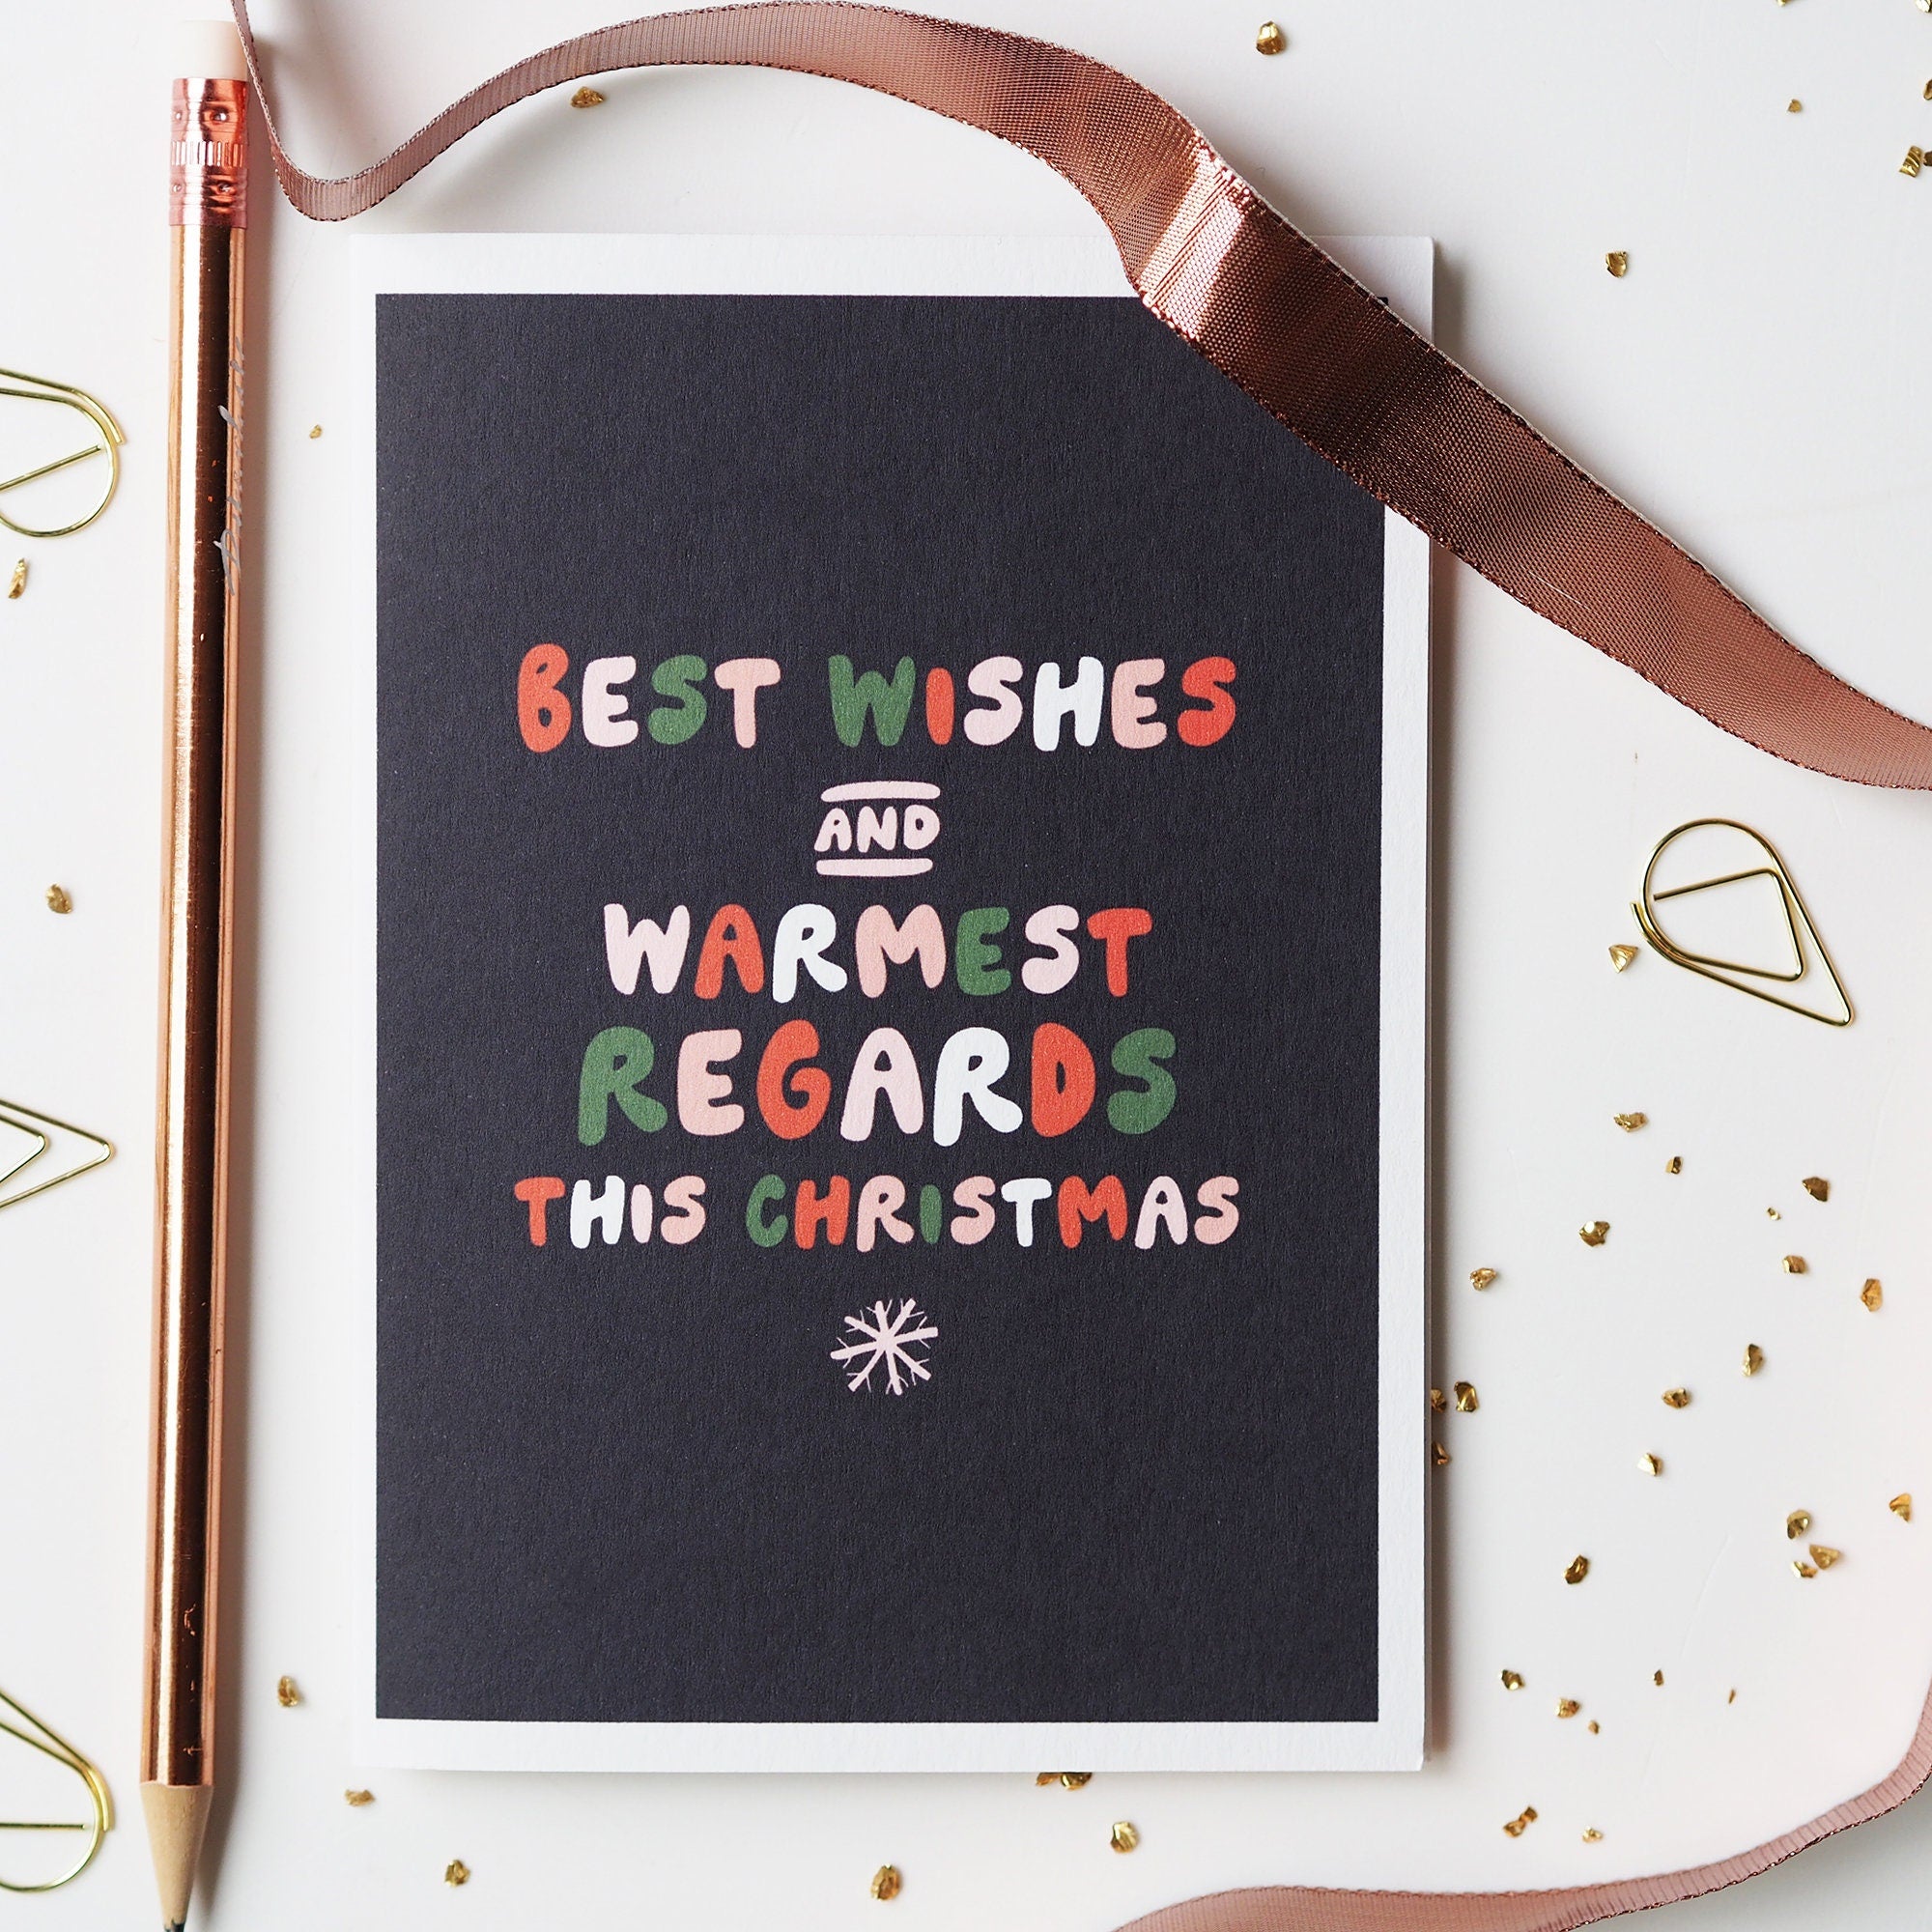 BEST WISHES
AND
WARMEST
REGARDS
THIS CHRISTMAS